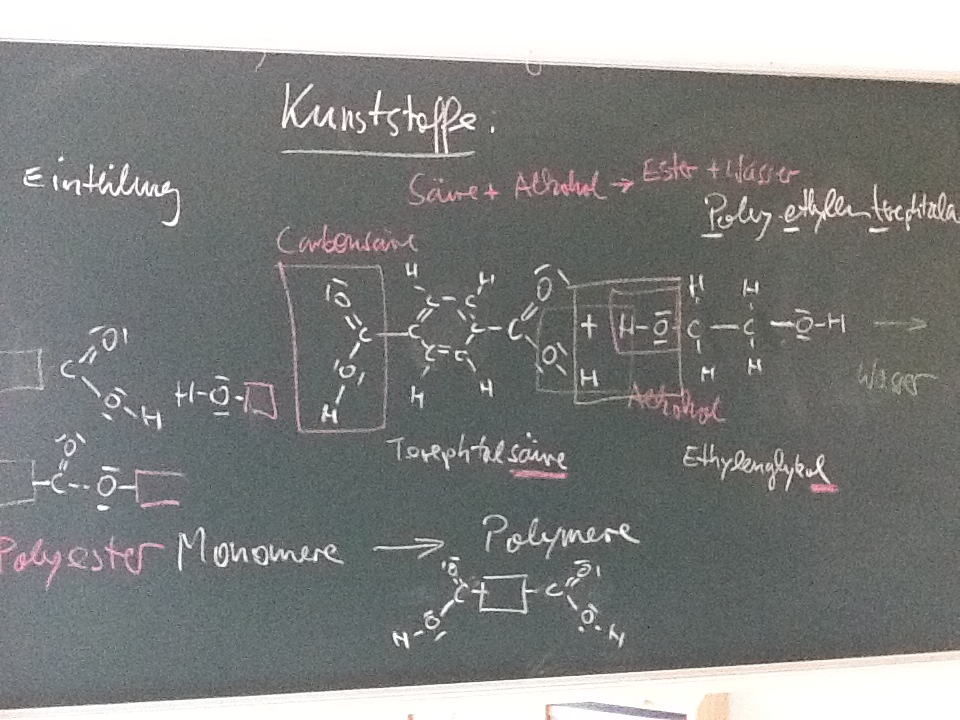 Kunststoffe:
Einteilung
Säure + Alkohol → Ester + Wasser
Polyethylentrephtala
Carbonsäure
H H O H H
O C C C C O + H-O C — C — O-H →
C C C
O C=C O
H H H H H H
Alkohol
Wasser
C O
O H H-O
Terephtalsäure
Ethylenglykol
O
C-O
Polyester Monomere → Polymere
O C C O
H-O O-H